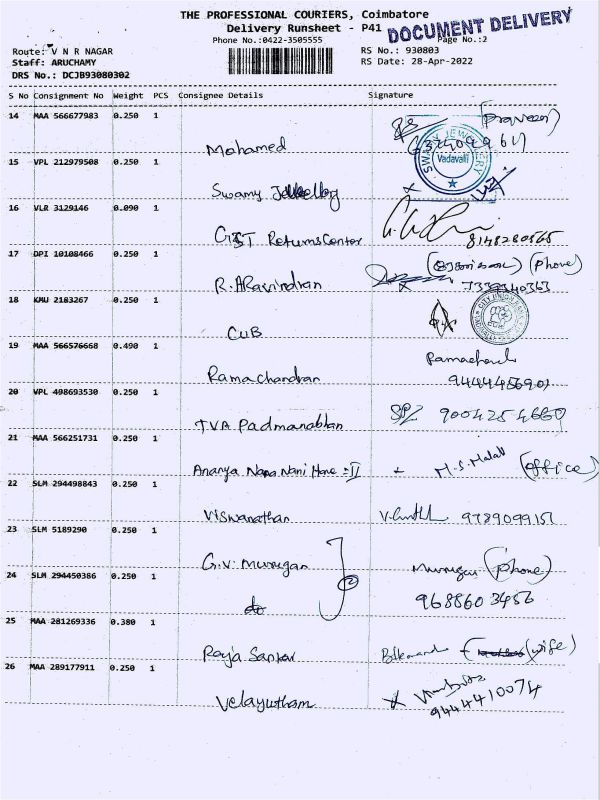 THE PROFESSIONAL COURIERS, Coimbatore
Delivery Runsheet - P41
DOCUMENT DELIVERY
Phone No.:0422-3505555
Page No.:2
Route: V N R NAGAR
RS No.: 930803
Staff: ARUCHAMY
RS Date: 28-Apr-2022
DRS No.: DCJB93080302
S No Consignment No Weight PCS Consignee Details Signature
14 MAA 566677983 0.250 1
Mohamed
15 VPL 212979508 0.250 1
SWAMY JEWELLERY
Vadavalli
Swamy Jewellery
16 VLR 3129146 0.090 1
GST Returns Center 8148280565
17 DPI 10108466 0.250 1
(phone)
R. ARavindran
18 KMU 2183267 0.250 1
CITY UNION BANK
CUB
19 MAA 566576668 0.490 1
Ramachandran
9444456901
20 VPL 498693530 0.250 1
TVA Padmanabhan
9004254660
21 MAA 566251731 0.250 1
Ananya Nana Nani Home - II
(office)
22 SLM 294498843 0.250 1
Viswanathan
9789099151
23 SLM 5189290 0.250 1
G.V. Murugan
Murugan (phone)
24 SLM 294450386 0.250 1
do
2
9688603456
25 MAA 281269336 0.380 1
Raja Sankar
(wife)
26 MAA 289177911 0.250 1
Velayutham
9444410074